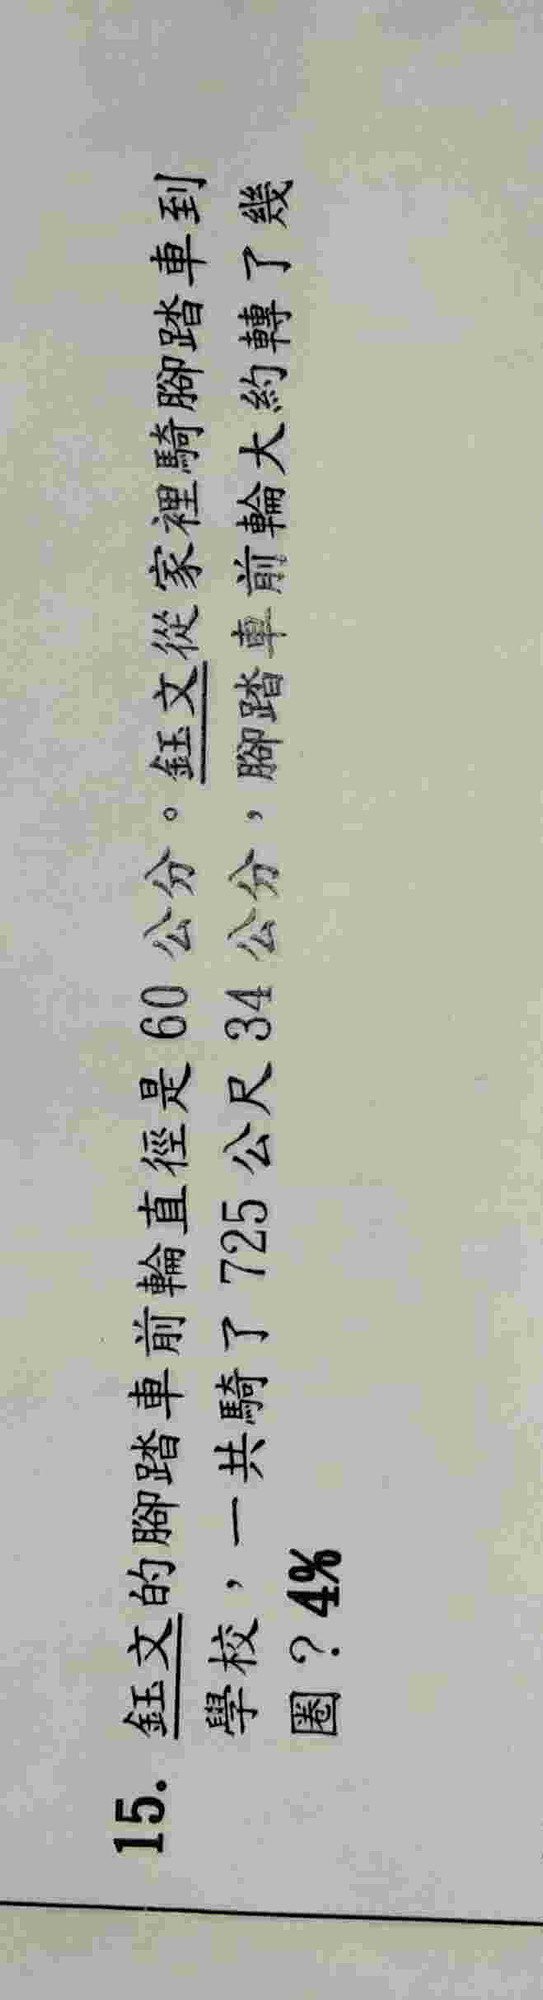 15. 鈺文的腳踏車前輪直徑是 60 公分。鈺文從家裡騎腳踏車到
學校，一共騎了 725 公尺 34 公分，腳踏車前輪大約轉了幾
圈？4%